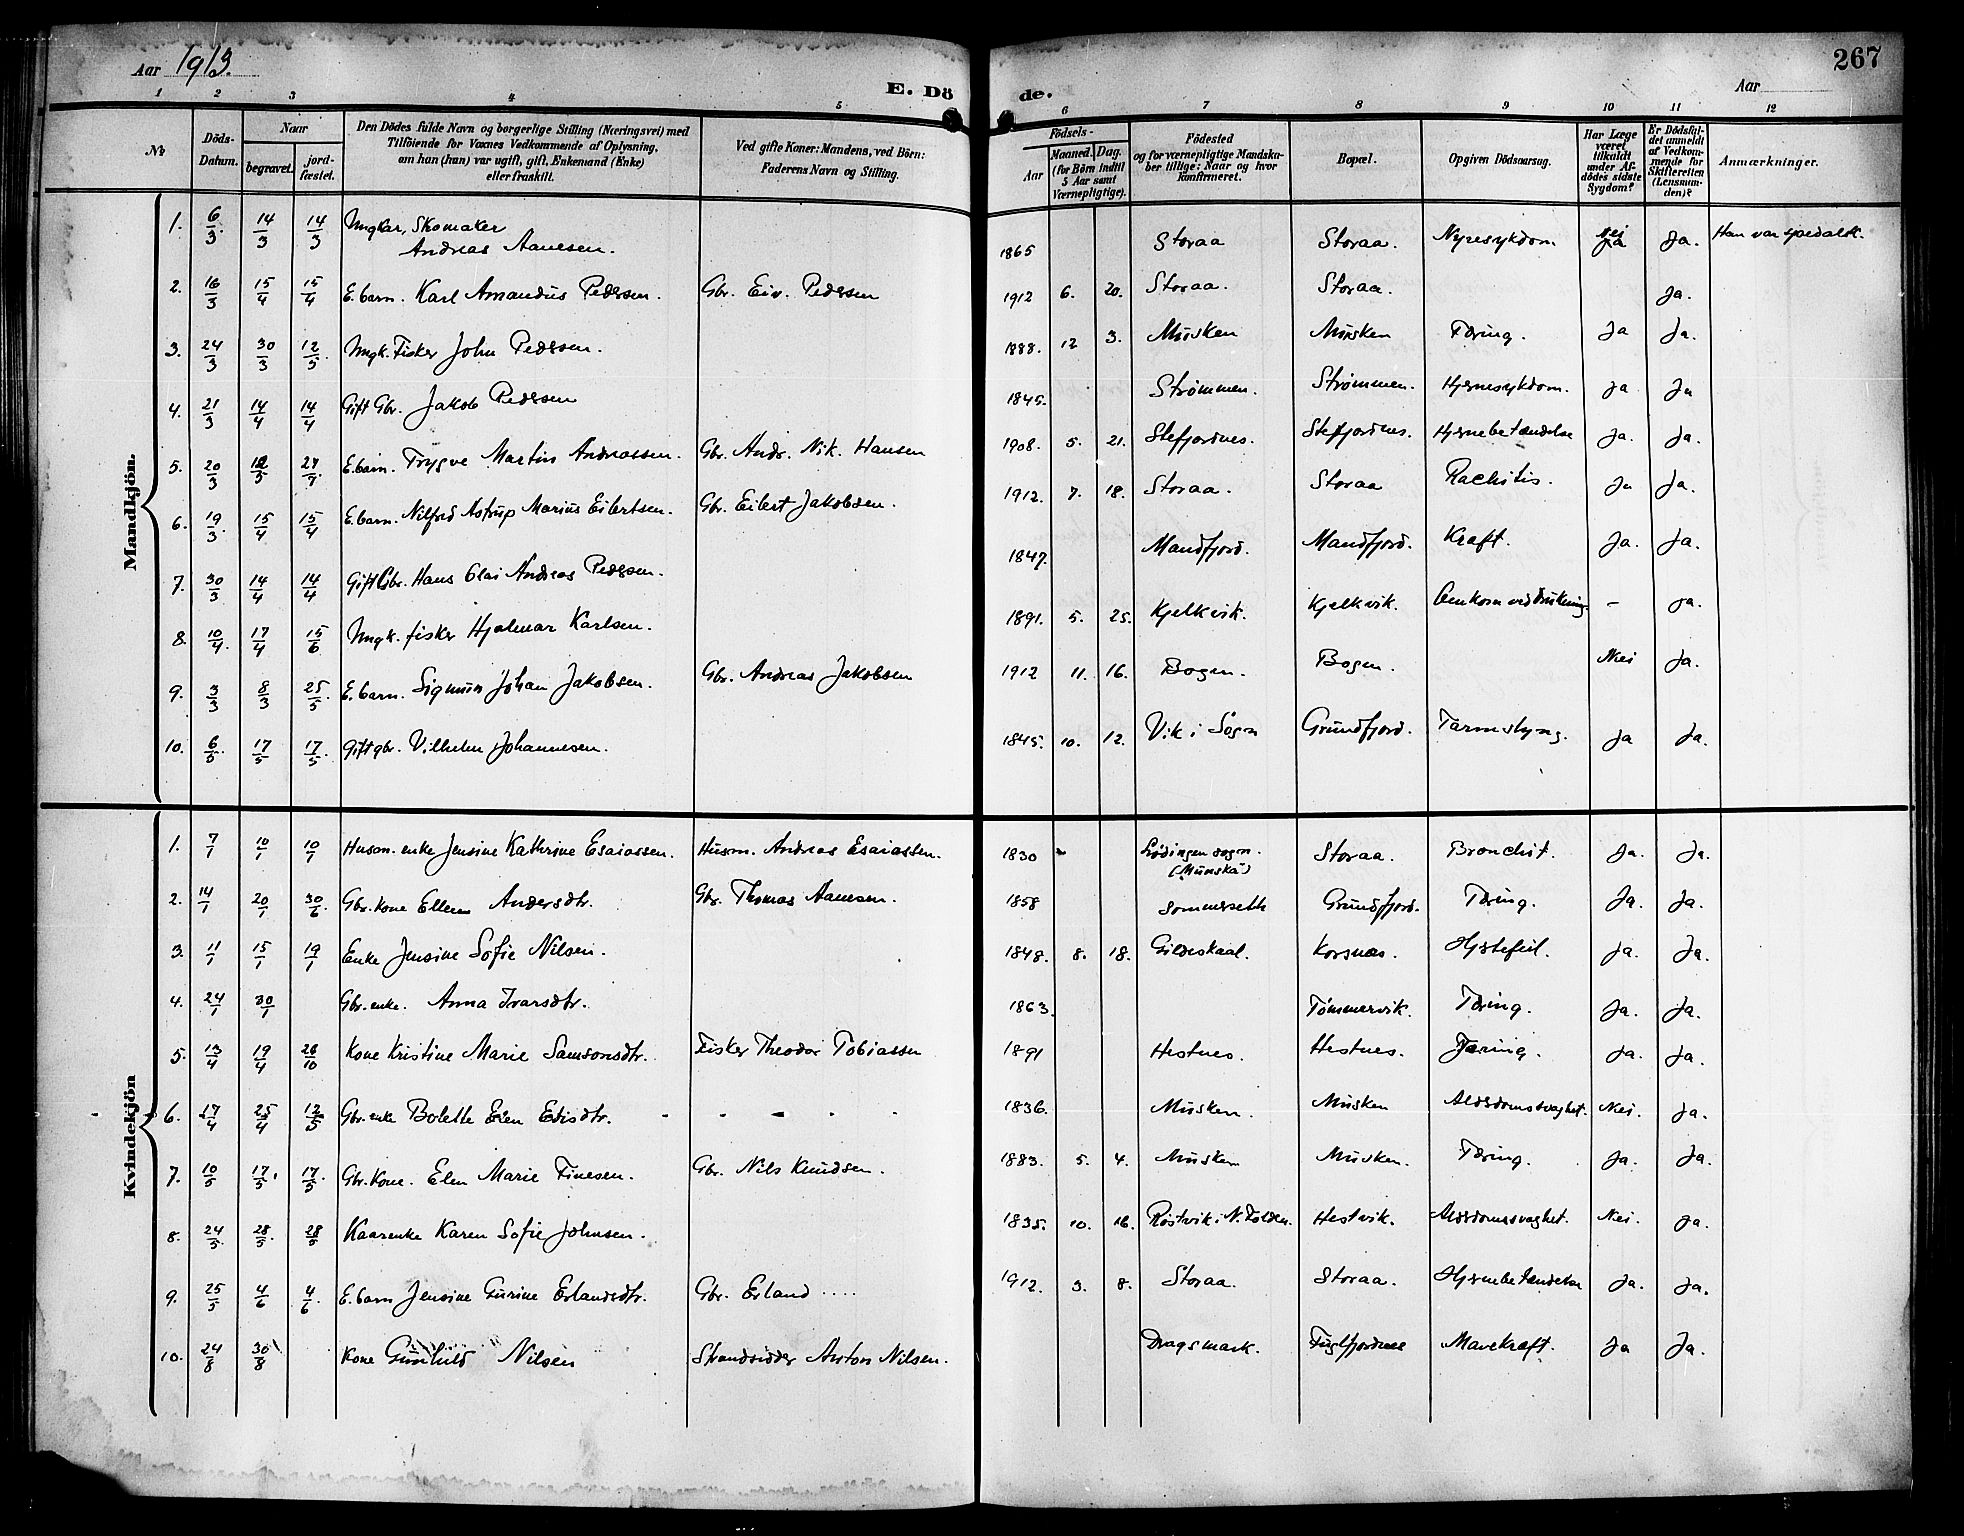 Aar 1913.
E. Dö de.
Aar
267
1 2 3 4 5 6 7 8 9 10 11 12
No
Döds-Datum.
Naar
begravet.
jord-fæstet.
Den Dödes fulde Navn og borgerlige Stilling (Næringsvei) med
Tilföiende for Voxnes Vedkommende af Oplysning,
om han (hun) var ugift, gift, Enkemand (Enke)
eller fraskilt.
Ved gifte Koner: Mandens, ved Börn:
Faderens Navn og Stilling.
Födsels-
Aar
Maaned. Dag.
(for Börn indtil
5 Aar samt
Værnepligtige).
Födested
og for værnepligtige Mandska-
ber tillige: Naar og hvor
konfirmeret.
Bopæl.
Opgiven Dödsaarsag.
Har Læge
været
tilkaldt
under Af-
dödes sidste
Sygdom?
Er Dödsfal-
det anmeldt
af Vedkom-
mende for
Skifteretten
(Lensman-
den)?
Anmærkninger.
Mandkjön.
1. 6/3. 14/3 14/3 Ungkar, Skomaker
Andreas Aanesen. 1865 Storaa Storaa. Nyresykdom. Nei Ja. Han var spedalsk.
2. 16/3 15/4 15/4 E. barn. Karl Amandus Pedersen. Gbr. Eiv. Pedersen 1912 6. 20. Storaa. Storaa. Ja.
3. 24/3 30/3 12/5 Ungk. Fisker John Pedersen. 1888. 12 3. Musken Musken Tæring. Ja Ja.
4. 21/3 14/4 14/4 Gift Gbr. Jakob Pedersen 1845. Strømmen. Strømmen. Hjernesykdom. Ja Ja
5. 20/3 12/5 27/7 E. barn. Trygve Martin Andreassen. Gbr. Andr. Nik. Hansen 1908. 5. 21. Stefjordnes. Stefjordnes. Hjernebetændelse Ja. Ja.
6. 19/3. 15/4 15/4 E. barn. Nilfred Astrup Marius Eilertsen. Gbr. Eilert Jakobsen. 1912. 7. 18. Storaa. Storaa Rachitis. Ja Ja.
7. 30/3 14/4 14/4 Gift Gbr. Hans Olai Andreas Pedersen. 1847. Mandfjord. Mandfjord. Kræft. Ja. Ja.
8. 10/4. 17/4 15/6 Ungk. fisker Hjalmar Karlsen. 1891. 5. 25. Kjelkvik. Kjelkvik. Omkom ved drukning. – Ja.
9. 3/3 8/3 25/5 E. barn. Sigmun Johan Jakobsen. Gbr. Andreas Jakobsen 1912 11. 16. Bogen. Bogen. Nei Ja.
10. 6/5. 17/5 17/5 Gift gbr. Vilhelm Johannesen. 1845. 10. 12. Vik i Sogn Grundfjord. Tarmslyng. Ja Ja.
Kvindekjön
1. 7/1 10/1 10/1 Husm. enke Jensine Kathrine Esaiassen. Husm. Andreas Esaiassen. 1830 Lødingen sogn.
(Munská) Storaa. Bronchit. Ja. Ja.
2. 14/1 20/1 30/6 Gbr. kone Ellen Andersdtr. Gbr. Thomas Aanesen. 1858 Sommersette Grundfjord. Tæring. Ja. Ja.
3. 11/1 15/1 19/1 Enke Jensine Sofie Nilsen. 1848. 8. 18. Gildeskaal. Korsnæs. Hjertefeil. Ja. Ja.
4. 24/1 30/1 Gbr. enke. Anna Ivarsdtr. 1863. Tømmervik. Tæring. Ja. Ja.
5. 13/4 19/4 28/10 Kone Kristine Marie Samsonsdtr. Fisker Theodor Tobiassen 1891 Hestnes. Hestnes. Tæring. Ja. Ja.
6. 17/4 25/4 12/5 Gbr. enke Bolette Elen Edisdtr. 1836. Musken. Musken Alderdomssvaghet. Nei. Ja.
7. 10/5 17/5 17/5 Gbr. kone. Elen Marie Finesen. Gbr. Nils Knudsen. 1883. 5. 4. Musken Musken. Tæring. Ja. Ja.
8. 24/5. 28/5. 28/5 Kaarenke Karen Sofie Johnsen. 1835. 10. 16. Røstvik i N. Folden. Hestvik. Alderdomssvaghet. Nei. Ja.
9. 25/5 4/6 4/6. E. barn Jensine Gurine Erlandsdtr. Gbr. Erland .... 1912. 3. 8. Storaa. Storaa. Hjernebetændelse Ja. Ja.
10. 24/8 30/8 Kone Gunhild Nilsen Strandsidder Anton Nilsen. Dragsmark. Fuglfjordnes Mavekræft. Ja Ja.